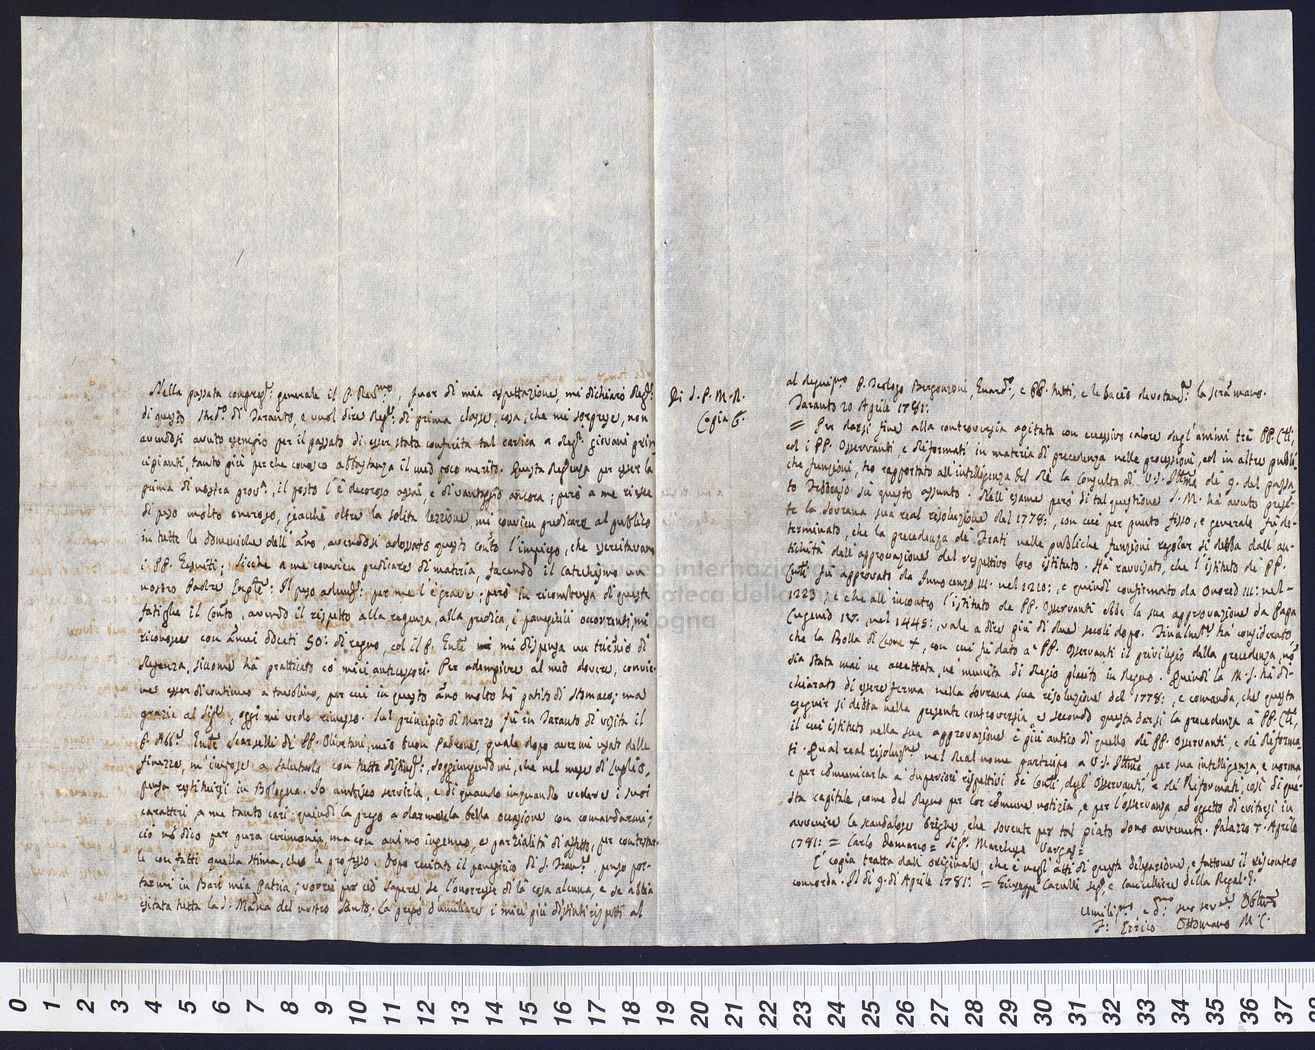 Nella passata congreg.e generale il P. Rev.mo, fuor di mia aspettazione, mi dichiarò Reg.te
di questo Stud.o di Taranto, e vuol dire Reg.te di prima classe; cosa, che mi sorprese, non
avendosi avuto esempio per il passato di esser stata conferita tal carica a Reg.ti giovani prin-
cipianti, tanto più perche conosco abbastanza il mio poco merito. Questa Reggenza per esser la
prima di nostra prov.a, il posto l'è decoroso assai e di vantaggio ancora; però a me riesce
di peso molto oneroso, giacchè oltre la solita lezzione mi convien predicare al publico
in tutte le domeniche dell'año, avendosi adossato questo Conto l'impiego, che esercitavano
i PP. Gesuiti. Sicchè a me convien predicare di materia, facendo il catechismo un
nostro Padre
fatighe il Conto, avendo il rispetto alla regenza, alla predica, e panegirici occorrenti mi
riconosce con añui ducati 50: di regno, col il P. Gnle mi dispensa un triennio di
Regenza, siccome hà pratticato cò miei antecessori. Per adempiere al mio dovere, convie-
ne esser di continuo a tavolino, per cui in questo año molto hò patito di stomaco; ma
grazie al Sig.e, oggi mi vedo rimesso. Sul principio di Marzo fù in Taranto di visita il
P. Abb.e Gnle Scarselli dè PP. Olivetani, mio buon Padrone, quale dopo avermi usato delle
finezze, m'impose a salutarlo con tutta distinz.e, soggiungendomi, che nel mese di Luglio,
pensa restituirsi in Bologna. Io anzioso servirla, e di quando inquando vedere i suoi
caratteri, a me tanto cari; quindi la prego a darmela bella occasione con comandarmi,
ciò nò dico per pura cerimonia, ma con animo ingenuo, e parzialità di affetto, per contestar-
le con fatti quella stima, che le professo. Dopo recitato il panegirico di S. Fran.co penso por-
tarmi in Bari mia Patria; vorrei per ciò sapere se l'occorresse di là cosa alcuna, e se abbia
esitata tutta la S. Mãna del nostro Santo. La prego d'umiliare i miei più distinti rispetti al
Di S. P. M. R.
Copia 6.
al degnis.mo P. Teologo Bergonzoni, Guard.o, e PP. tutti, e le bacio devotam.e la sacra mano.
Taranto 20 Aprile 1781:
= Per darsi fine alla controversia agitata con eccessivo calore degl'animi trà PP. Ctli,
col i PP. Osservanti, e Riformati in materia di precedenza nelle processioni, ed in altre publi-
che funzioni, hò rapportato all'intelligenza del Rè la Consulta di V. S. Ill.ma de 9. del passa-
to Febbrajo sù questo assunto. Nell'esame però di tal questione S. M. hà avuto presen-
te la sovrana sua real risoluzione del 1778:, con cui per punto fisso, e generale fù de-
terminato, che la precedenza de Frati nelle pubbliche funzioni regolar si debba dall'an-
tichità dell'approvazione del respettivo loro istituto. Hà ravvisato, che l'istituto dè PP.
Ctli fù approvato da Innocenzo III: nel 1210:, e quindi confirmato da Onorio III: nel-
1223:, e che all'incontro l'istituto de PP. Osservanti ebbe la sua approvazione da Papa
Eugenio IV:, nel 1445:, vale a dire più di due secoli dopo. Finalm.e hà considerato,
che la Bolla di Leone X, con cui fù dato a' PP. Osservanti il privilegio della precedenza nò
sia stata mai ne accettata, ne munita di Regio placito in Regno. Quindi la M. S. hà di-
chiarato di essere ferma nella sovrana sua risoluzione del 1778:, e comanda, che questa
eseguir si debba nella presente controversia, e secondo questa darsi la precedenza a PP. Ctli,
il cui istituto nella sua approvazione è più antico di quello dè PP. Osservanti, e dè Riforma-
ti. Qual real risoluz.e nel Real nome partecipo a V. S. Ill.ma per sua intelligenza, e norma
e per comunicarla a' Superiori rispettivi de Contli, degl'Osservanti, e de' Riformati, così di que-
sta capitale, come del Regno per lor comune notizia, e per l'osservanza ad oggetto di evitarsi in
avvenire le scandalose brighe, che sovente per tal piato sono avvenute. Palazzo 7. Aprile
1781: = Carlo Demarco = Sig.e Marchese Vargas =
E' copia tratta dall'originale, che è negli atti di questa delegazione, e fattone il riscontro
concorda. Il dì 9. di Aprile 1781: = Giuseppe Carulli seg.o e cancelliere della Regal G.
Umilis.mo e D.mo suo serv.e Obblmo
F: Errico Ottomano M. C.